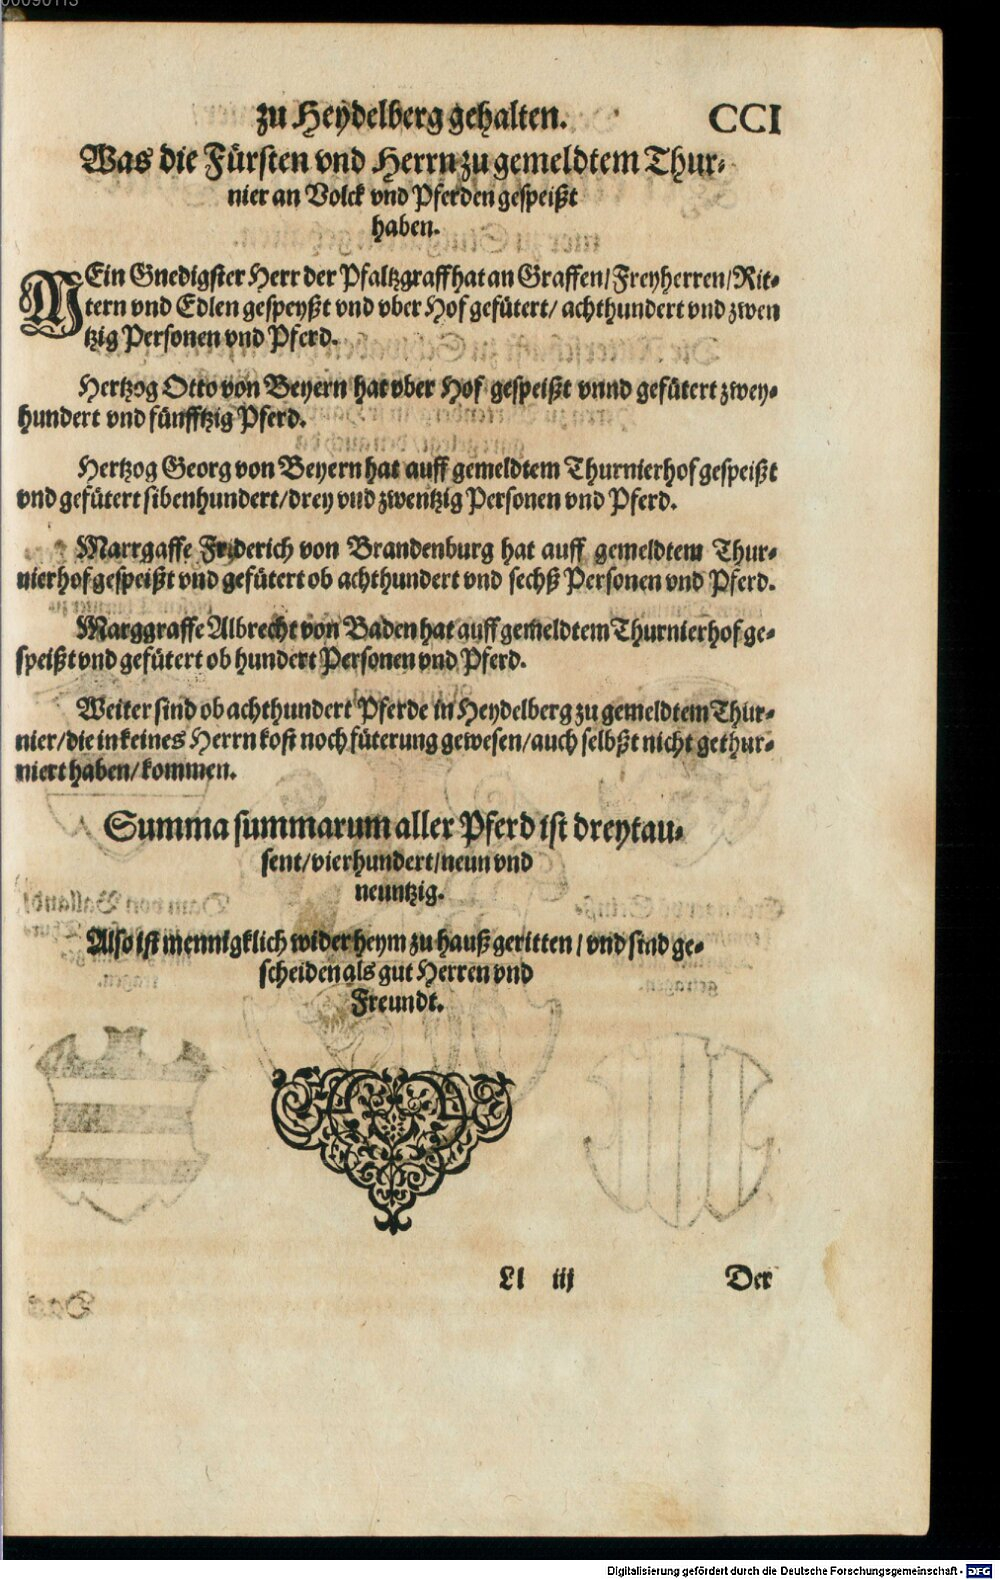 zu Heydelberg gehalten. CCI
Was die Fürsten vnd Herrn zu gemeldtem Thur-
nier an Volck vnd Pferden gespeißt
haben.
MEin Gnedigster Herr der Pfaltzgraff hat an Graffen/Freyherren/Rit-
tern vnd Edlen gespeyßt vnd vber Hof gefütert/ achthundert vnd zwen
tzig Personen vnd Pferd.
Hertzog Otto von Beyern hat vber Hof gespeißt vnnd gefütert zwey-
hundert vnd fünfftzig Pferd.
Hertzog Georg von Beyern hat auff gemeldtem Thurnierhof gespeißt
vnd gefütert sibenhundert/drey vnd zwentzig Personen vnd Pferd.
Marrgaffe Friderich von Brandenburg hat auff gemeldtem Thur-
nierhof gespeißt vnd gefütert ob achthundert vnd sechß Personen vnd Pferd.
Marggraffe Albrecht von Baden hat auff gemeldtem Thurnierhof ge-
speißt vnd gefütert ob hundert Personen vnd Pferd.
Weiter sind ob achthundert Pferde in Heydelberg zu gemeldtem Thur-
nier/die in keines Herrn kost noch füterung gewesen/auch selbßt nicht gethur-
niert haben/kommen.
Summa summarum aller Pferd ist dreytau-
sent/vierhundert/neun vnd
neuntzig.
Also ist mennigklich wider heym zu hauß geritten/vnd sind ge-
scheiden als gut Herren vnd
Freundt.
Ll iij Der
Digitalisierung gefördert durch die Deutsche Forschungsgemeinschaft - DFG